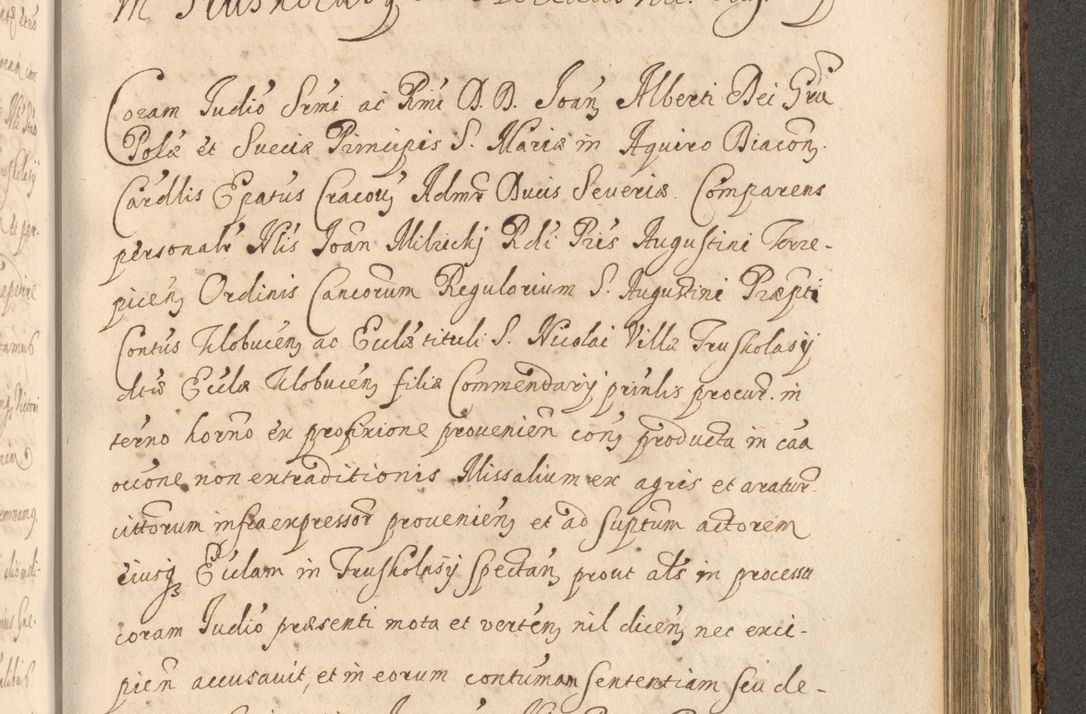 Coram Judio Srmi ac Rmi D. D. Joañ Alberti Dei Gra
Polæ et Sueciæ Principis S. Mariæ in Aquiro Diacoñ.
Cardlis Epatus Cracov Admr Ducis Severiæ. Comparens
personalr Nlis Joan Milzickj Rdi Pris Augustini Terre-
piceñ Ordinis Cancorum Regularium S. Augustini Præpti
Contus Klobuceñ ac Ecclæ tituli S. Nicolai Villæ Truskolasÿ
dctæ Ecclæ Klobuceñ filiæ Commendarÿ prinlis procur. in
terno horno ex prof ixione provenieñ coñ producta in caa
occone non extraditionis Missalium ex agris et aratur.
cittorum infra expressor provenieñ et ad suptum actorem
eiusq Ecclam in Truskolasÿ spectañ prout als in processu
coram Judio præsenti mota et verteñ nil diceñ nec exci-
pieñ accusavit, et in eorum contumam sententiam seu de-